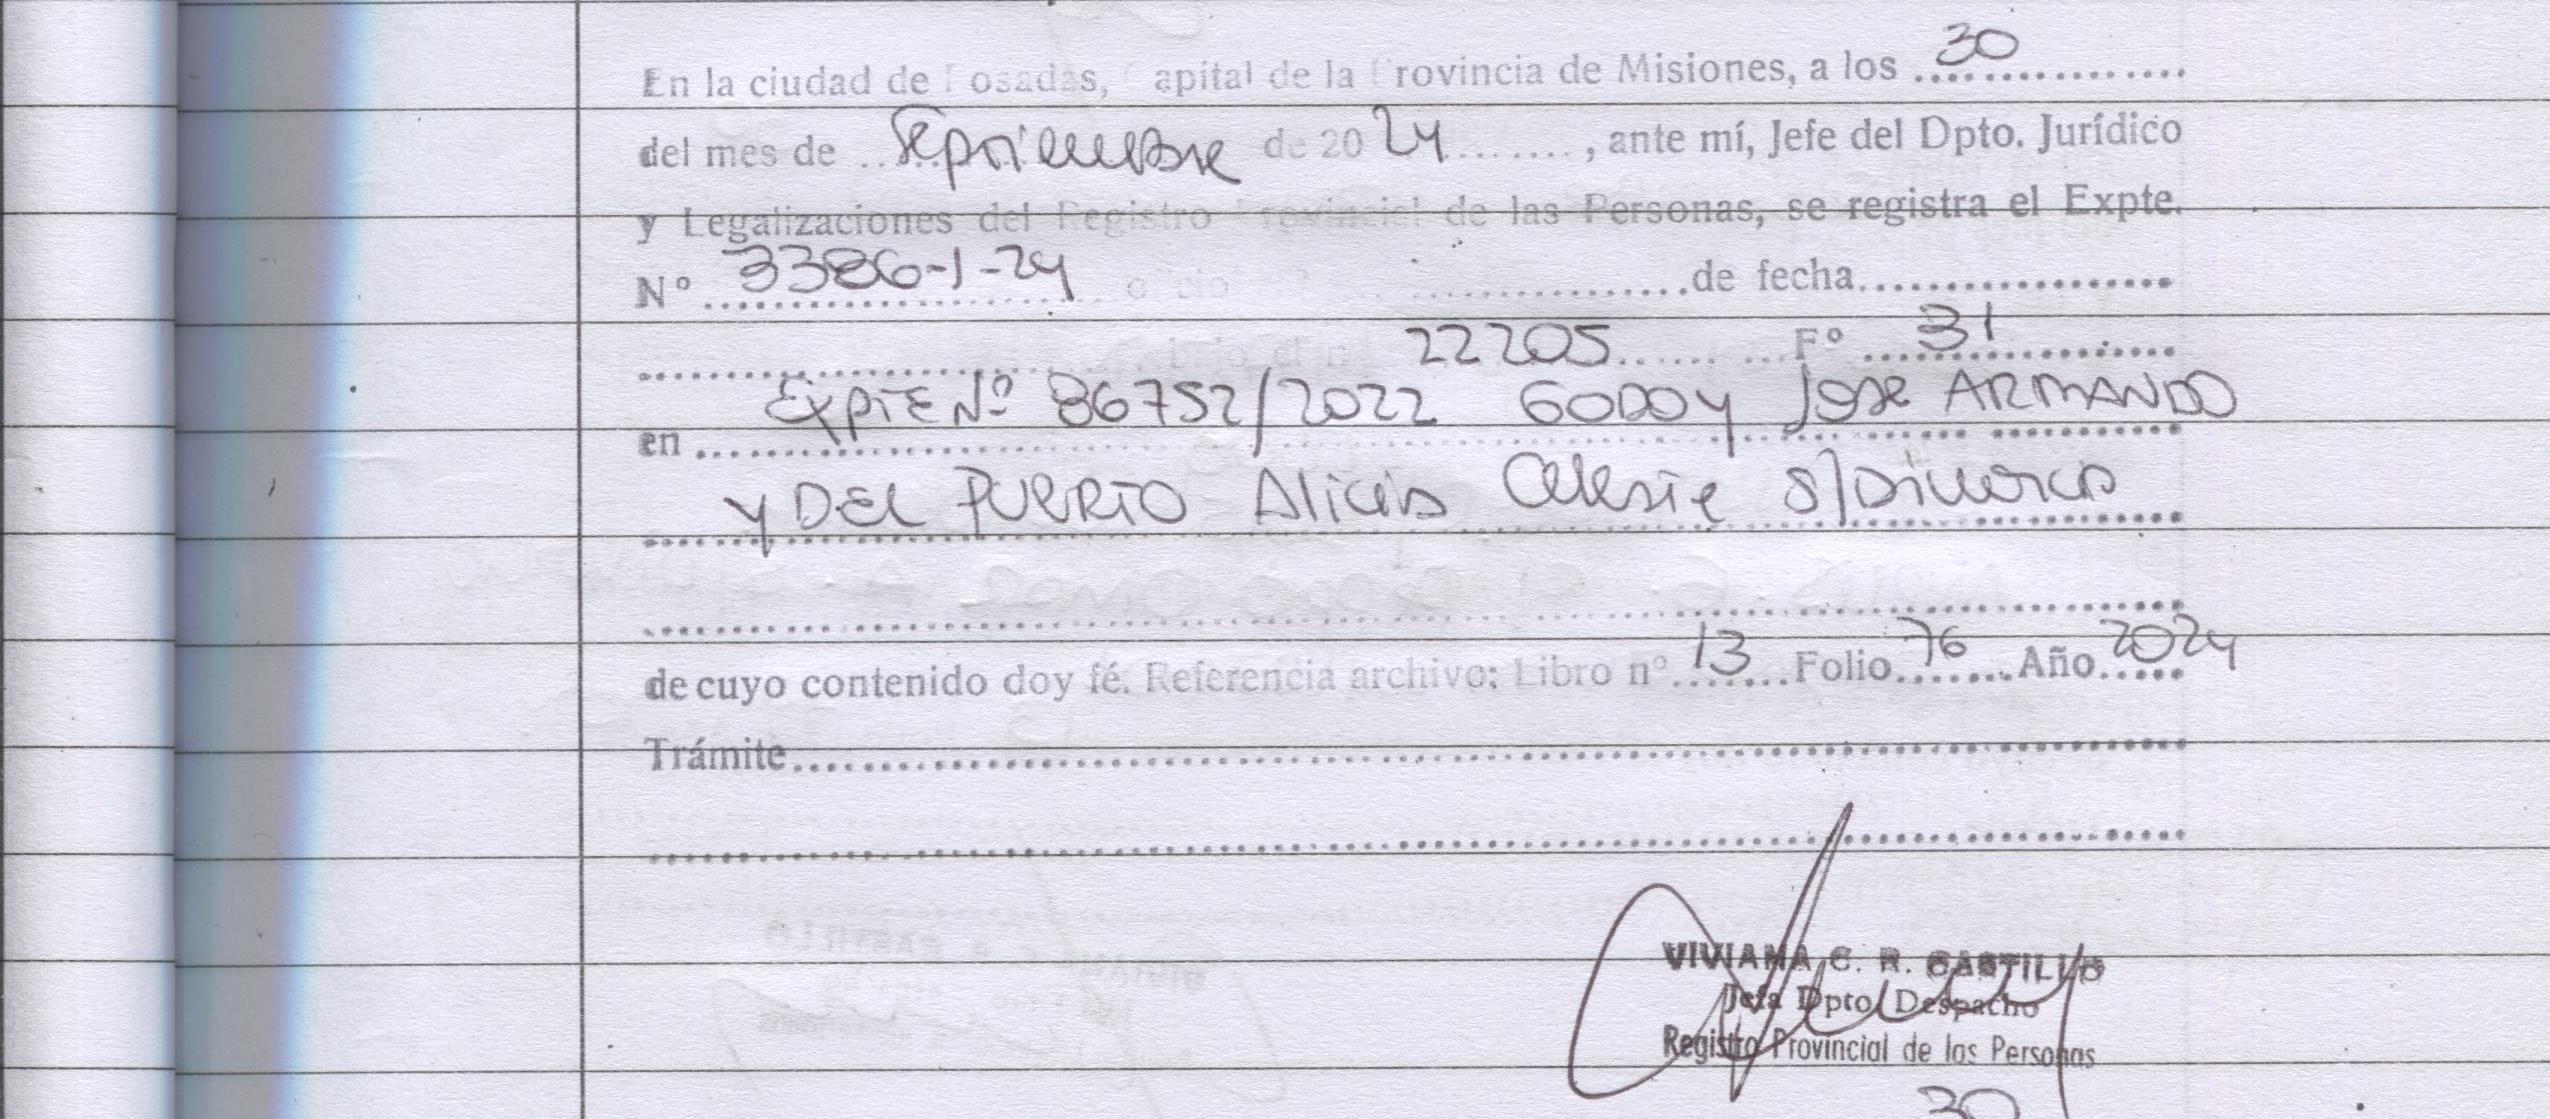 En la ciudad de Posadas, Capital de la Provincia de Misiones, a los 30
del mes de Septiembre de 2024, ante mí, Jefe del Dpto. Jurídico
y Legalizaciones del Registro Provincial de las Personas, se registra el Expte.
N° 3386-1-24 oficio de fecha
22205 F° 31
en Expte Nº 86752/2022 GODOY Jose ARMANDO
y DEL PUERTO Alicia Celeste S/Divorcio
de cuyo contenido doy fé. Referencia archivo: Libro n° 13 Folio 76 Año 2024
Trámite
VIVIANA C. R. CASTILLO
Jefa Dpto Despacho
Registro Provincial de las Personas
30